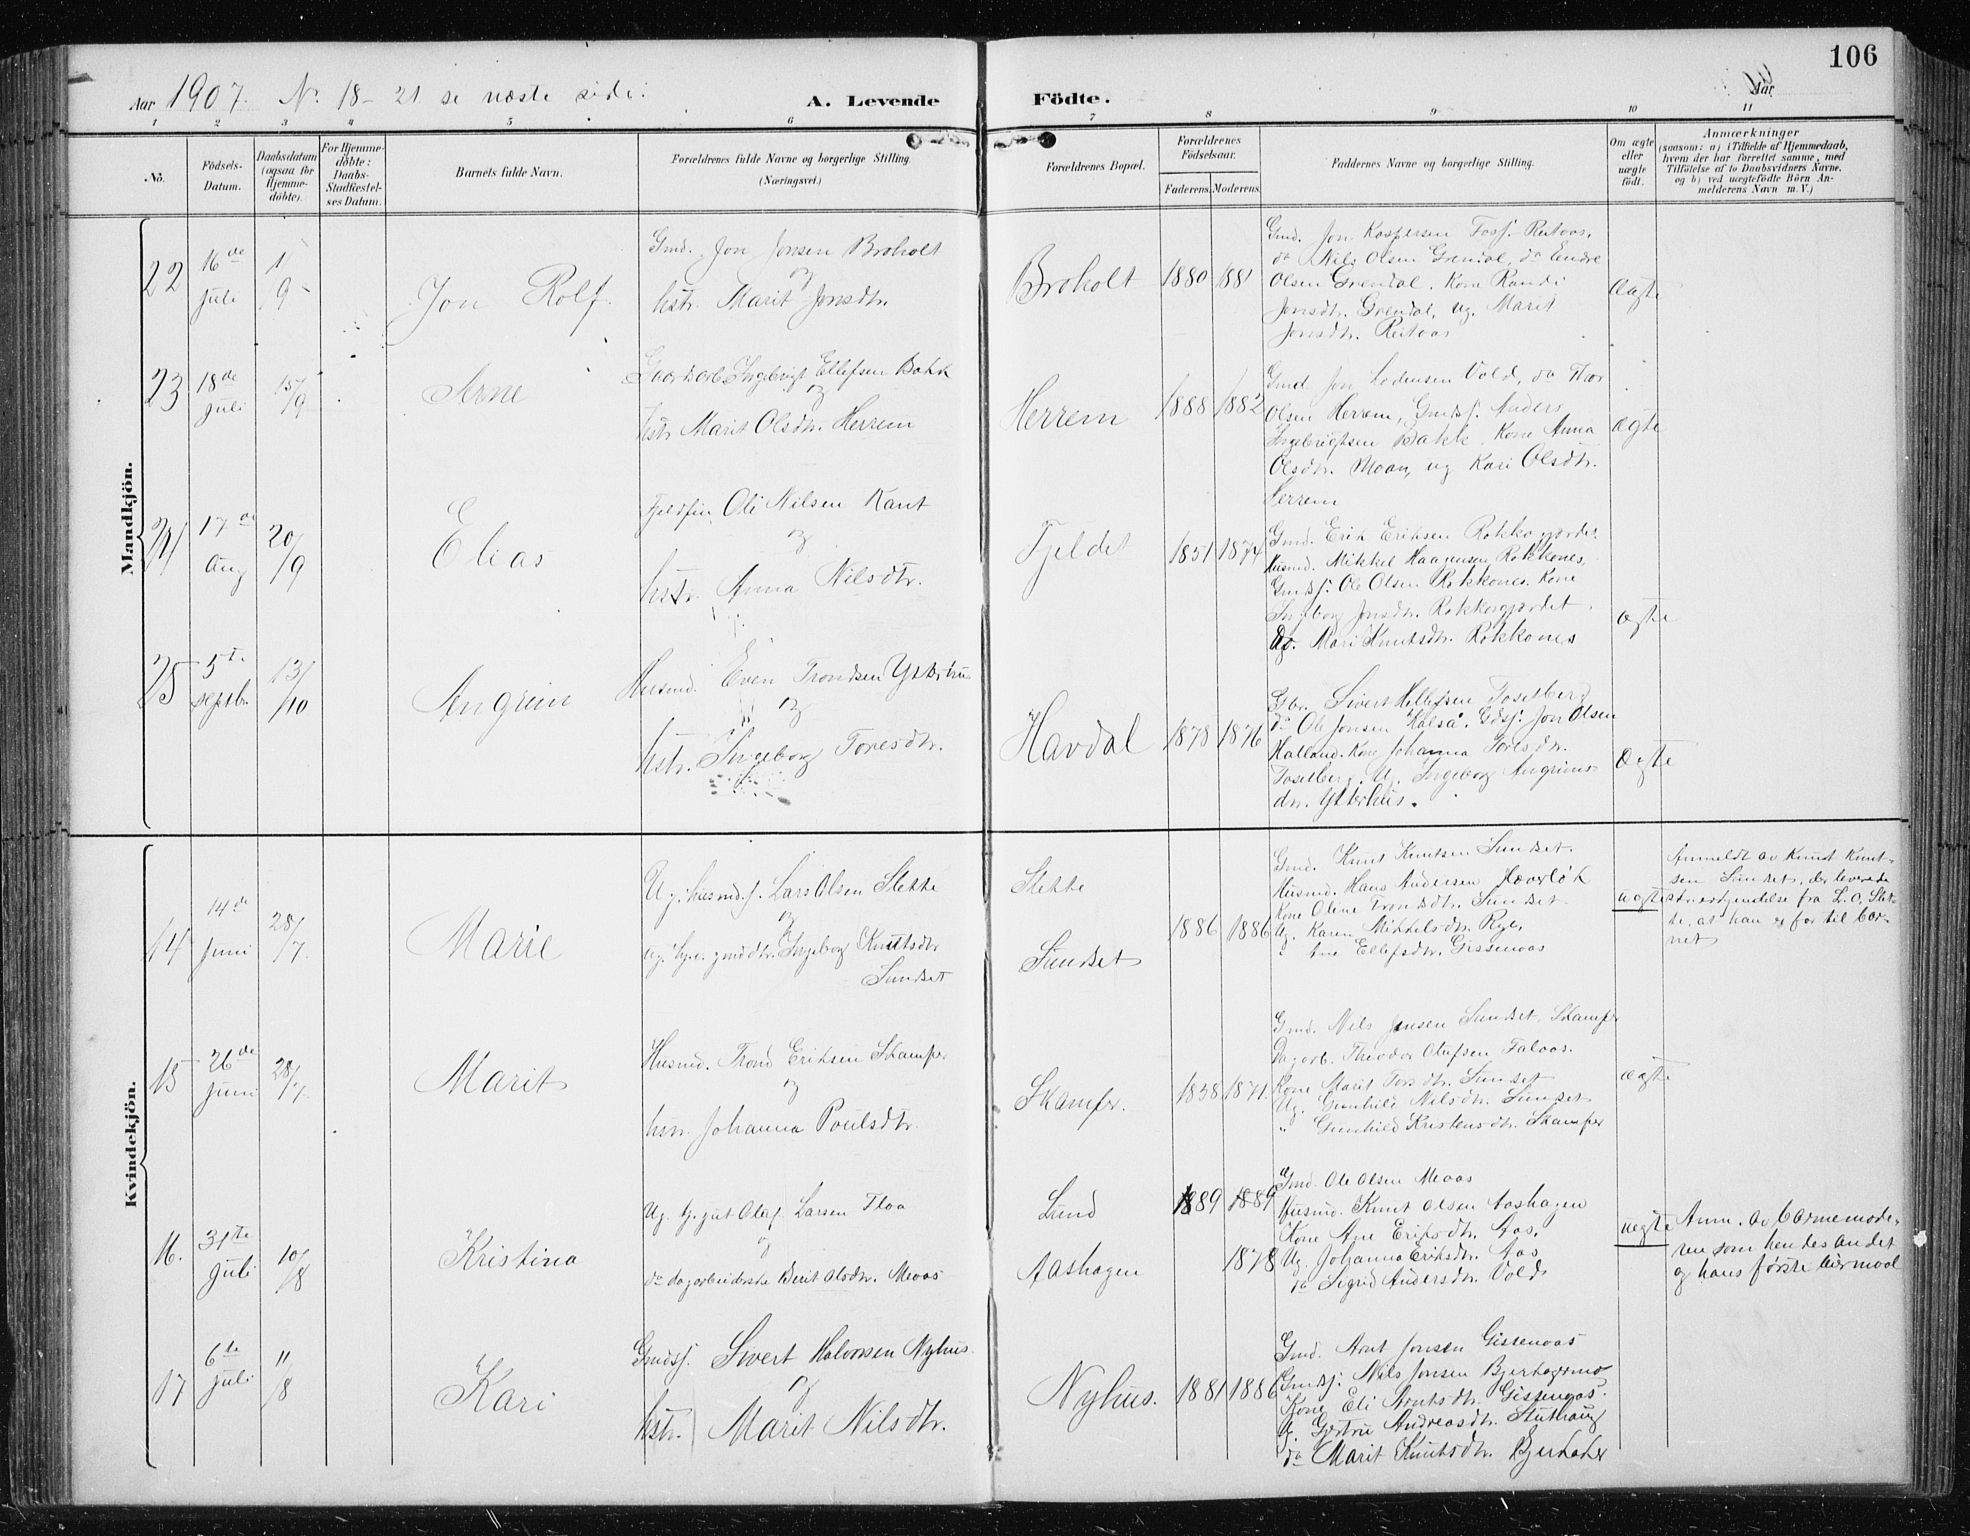 106
Aar 1907. No 18-21 se næste side:
A. Levende Födte.
Aar
1 2 3 4 5 6 7 8 9 10 11
No.
Födsels-Datum.
Daabsdatum (ogsaa for Hjemmedöbte).
For Hjemmedöbte: Daabs-Stadfæstelses Datum.
Barnets fulde Navn.
Forældrenes fulde Navne og borgerlige Stilling.
(Næringsvei.)
Forældrenes Bopæl.
Forældrenes Födselsaar.
Faderens. Moderens.
Faddernes Navne og borgerlige Stilling.
Om ægte eller uægte födt.
Anmærkninger
(saasom: a) i Tilfælde af Hjemmedaab,
hvem der har forrettet samme, med
Tilföielse af to Daabsvidners Navne.
og b) ved uægtefödte Börn An-
melderens Navn m. V.)
Mandkjön.
22
16de juli
1/9
Jon Rolf
Gmd. Jon Jonsen Broholt
og
hstr. Marit Jonsdtr.
Broholt
1880 1881
Gmd. Jon Kaspersen
do Nils Olsen Grendal, do Endre
Olsen Grendal. Kone Randi
Jonsdtr. Grendal, ug. Marit
Jonsdtr.
ægte
23
18de juli
15/9
Arne
Ingebrigt Ellefsen Bakk
og
hstr Marit Olsdtr. Herrem
Herrem
1888 1882
Gmd Jon Lodensen Vold, do Thor
Olsen Herrem, Gmdsj. Anders
Ingebrigtsen Bakk. Kone Anna
Olsdtr. Moan, ug Kari Olsdtr.
Herrem
ægte
24
17de Aug
20/9
Elias
Fjeldfin Ole Nilsen Kant
og
hstr. Anna Nilsdtr.
Fjeldet
1851 1874
Gmd. Erik Eriksen
Husmd. Mikkel Haagensen Rokkones,
Gmdsj. Ole Olsen Rokkones. Kone
Ingeborg Jonsdtr.
Ug. Mari Knutsdtr. Rokkones
ægte
25
5te septbr.
13/10
Angrim
Husmd. Even Trondsen Ytterhus
og
hstr. Ingeborg Toresdtr.
Havdal
1878 1876
Gbr. Sivert Hellefsen Toselberg
do Ole Jonsen Kalså. Gdsj. Jon Olsen
Halland. Kone Johanna Toresdtr.
Toselberg. Ug. Ingeborg Angrims-
dtr. Ytterhus.
ægte
Kvindekjön.
14
14de juni
28/7
Marie
Ug. husmdsj. Lars Olsen Slette
og
ug. gmddtr. Ingeborg Knutsdtr
Sundset
Slette
Sundset
1886 1886
Gmd. Knut Knutsen Sundset.
Husmd. Hans Andersen
Kone Oline Trondsdtr. Sundset
Ug. Karen Mikkelsdtr. Rye,
" Ane Ellefsdtr. Gissenaas
uægte
Anmeldt av Knut Knut-
sen Sundset, der leverede
fra L. O. Slet-
te, at han er far til bar-
net
15
26de juni
28/7.
Marit
Husmd. Trond Eriksen Skamfer
og
hstr. Johanna Poulsdtr.
Skamfer.
1858 1871.
Gmd. Nils Jonsen Sundset, Skamfer
Dagarb. Theodor Olufsen Falaas.
Kone Marit Torsdtr. Sundset
Ug. Gunhild Nilsdtr. Sundset
" Gunhild Kristensdtr. Skamfer
ægte
16.
31te juli
10/8
Kristina
Ug. tj.gut Olaf Larsen Floa
og
do dagarbeiderske Berit Olsdtr. Meaas
Lund
Aashagen
1889 1889
1878
Gmd. Ole Olsen Meaas
Husmd. Knut Olsen Aashagen
Kone Ane Eriksdtr. Aas.
Ug. Johanna Eriksdtr. Aas
do Sigrid Andersdtr. Volds
uægte
Anm. av barnemode-
ren som hendes andet
og hans første leiermaal
17
6te juli
11/8
Kari
Gmdsj. Sivert Halvorsen Nyhus.
og
hstr. Marit Nilsdtr.
Nyhus.
1881 1886
Gmd. Arnt Jonsen Gissenaas
Gmdsj: Nils Jonsen
Kone Eli Arntsdtr. Gissenaas.
Ug. Gjertru Andreasdtr. Stuthaug
do Marit Knutsdtr.